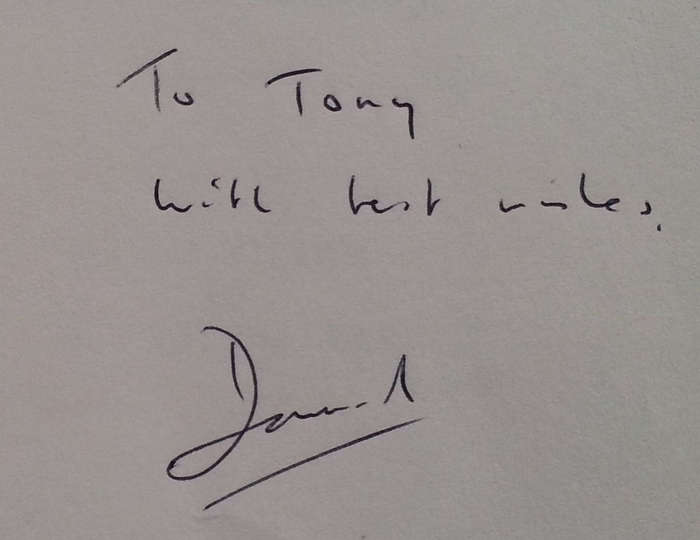 To Tony
with best wishes.
David